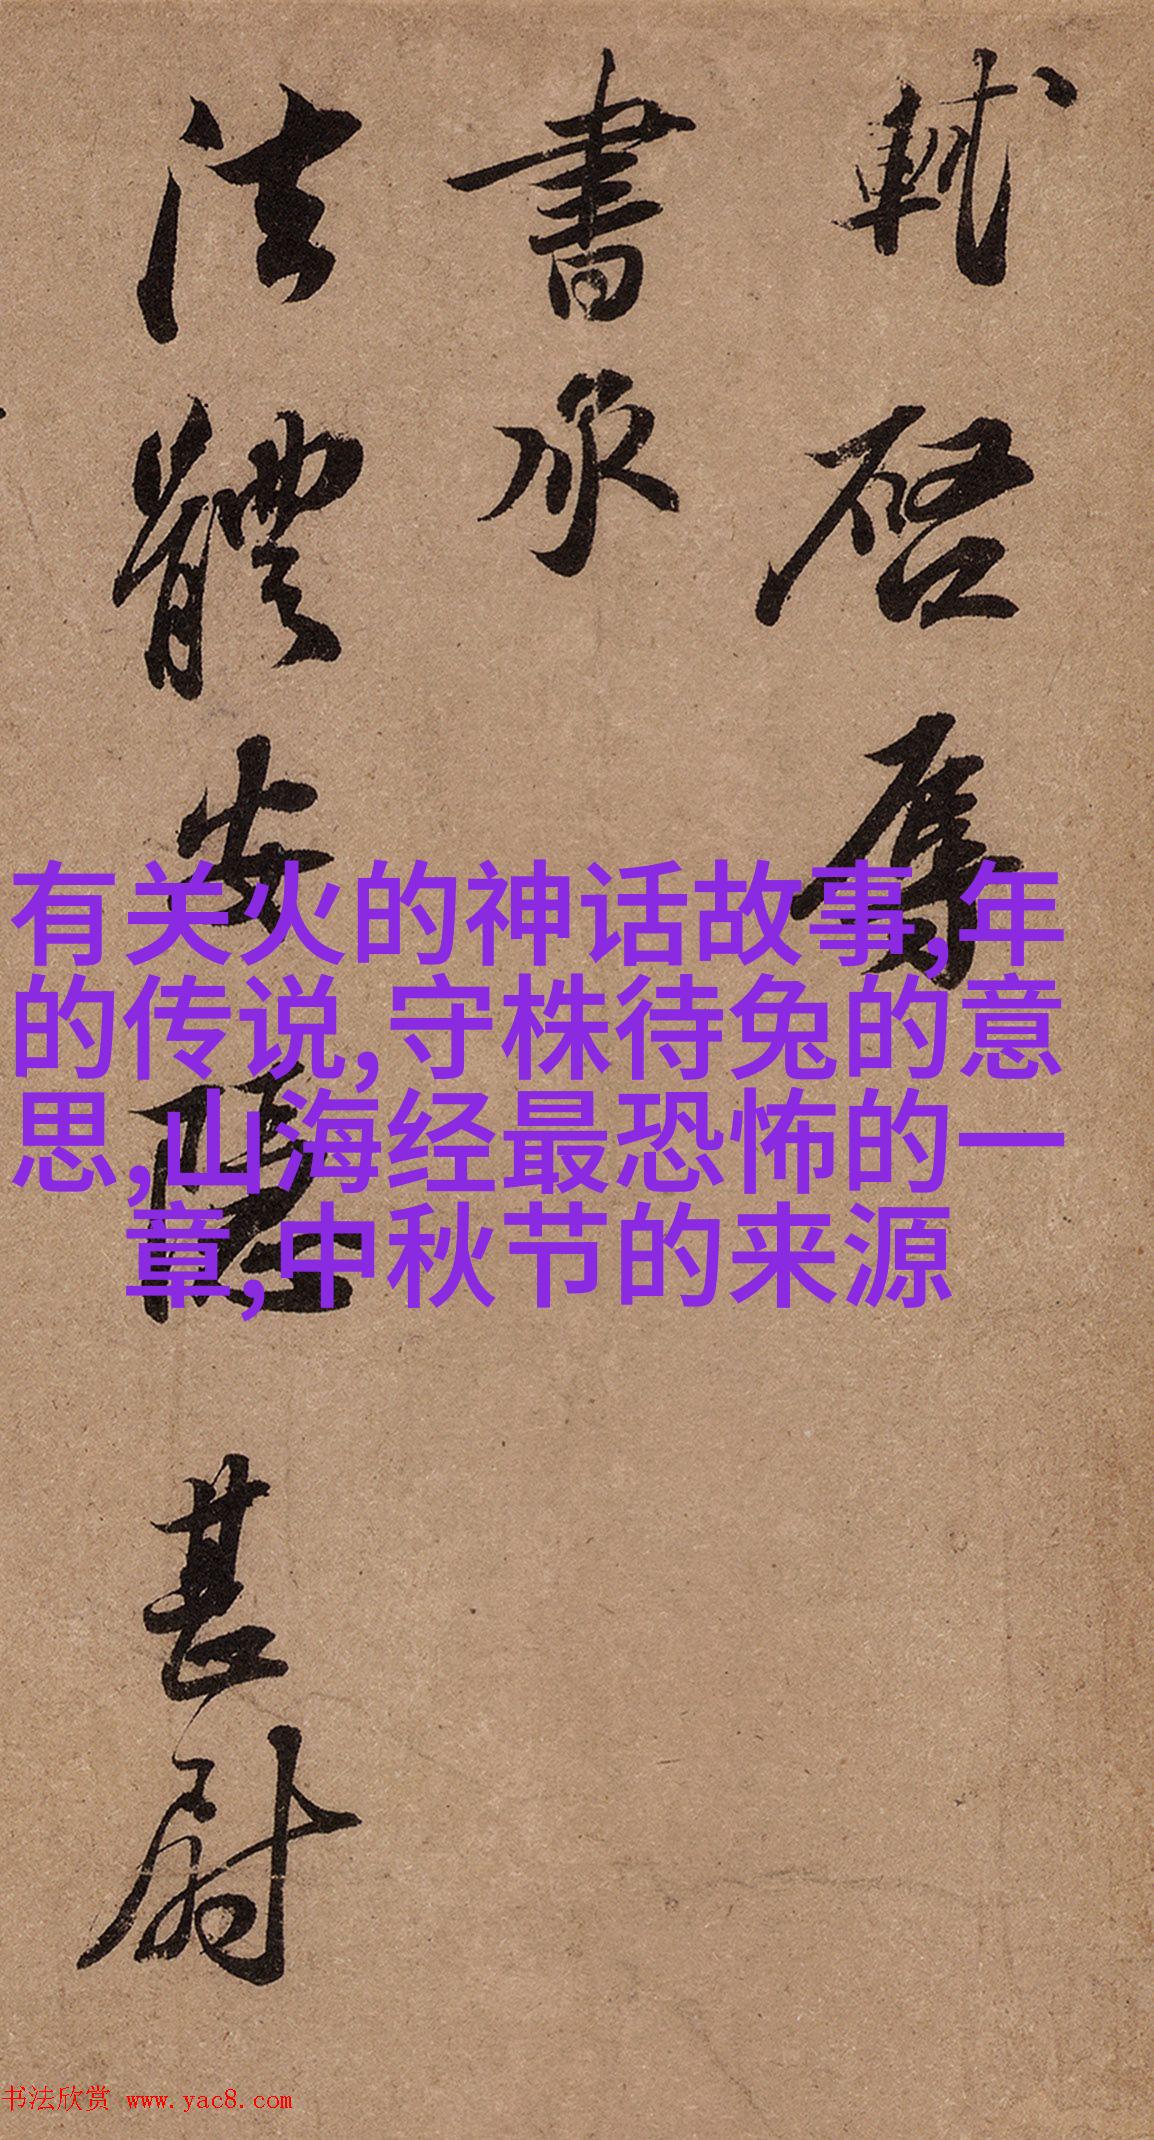 軾啓辱
書承
法體安隱甚尉
有关火的神话故事,年
的传说,守株待兔的意
思,山海经最恐怖的一
章,中秋节的来源
书法欣赏 www.yac8.com